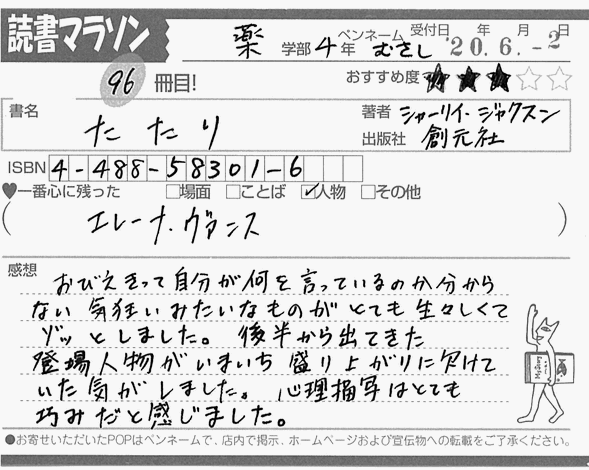 読書マラソン
薬 学部 4 年 ペンネーム むさし 受付日 '20. 年 6. 月 -2 日
96 冊目! おすすめ度 ★★★☆☆
書名 たたり
著者 シャーリイ・ジャクスン
出版社 創元社
ISBN 4-488-58301-6
♥一番心に残った □場面 □ことば ☑人物 □その他
( エレーナ・ヴァンス )
感想
おびえきって自分が何を言っているのか分から
ない 気狂いみたいなものが とても 生々しくて
ゾッ としました。 後半から出てきた
登場人物が いまいち 盛り上がりに欠けて
いた気がしました。 心理描写はとても
巧みだと感じました。
●お寄せいただいたPOPはペンネームで、店内で掲示、ホームページおよび宣伝物への転載をご了承ください。